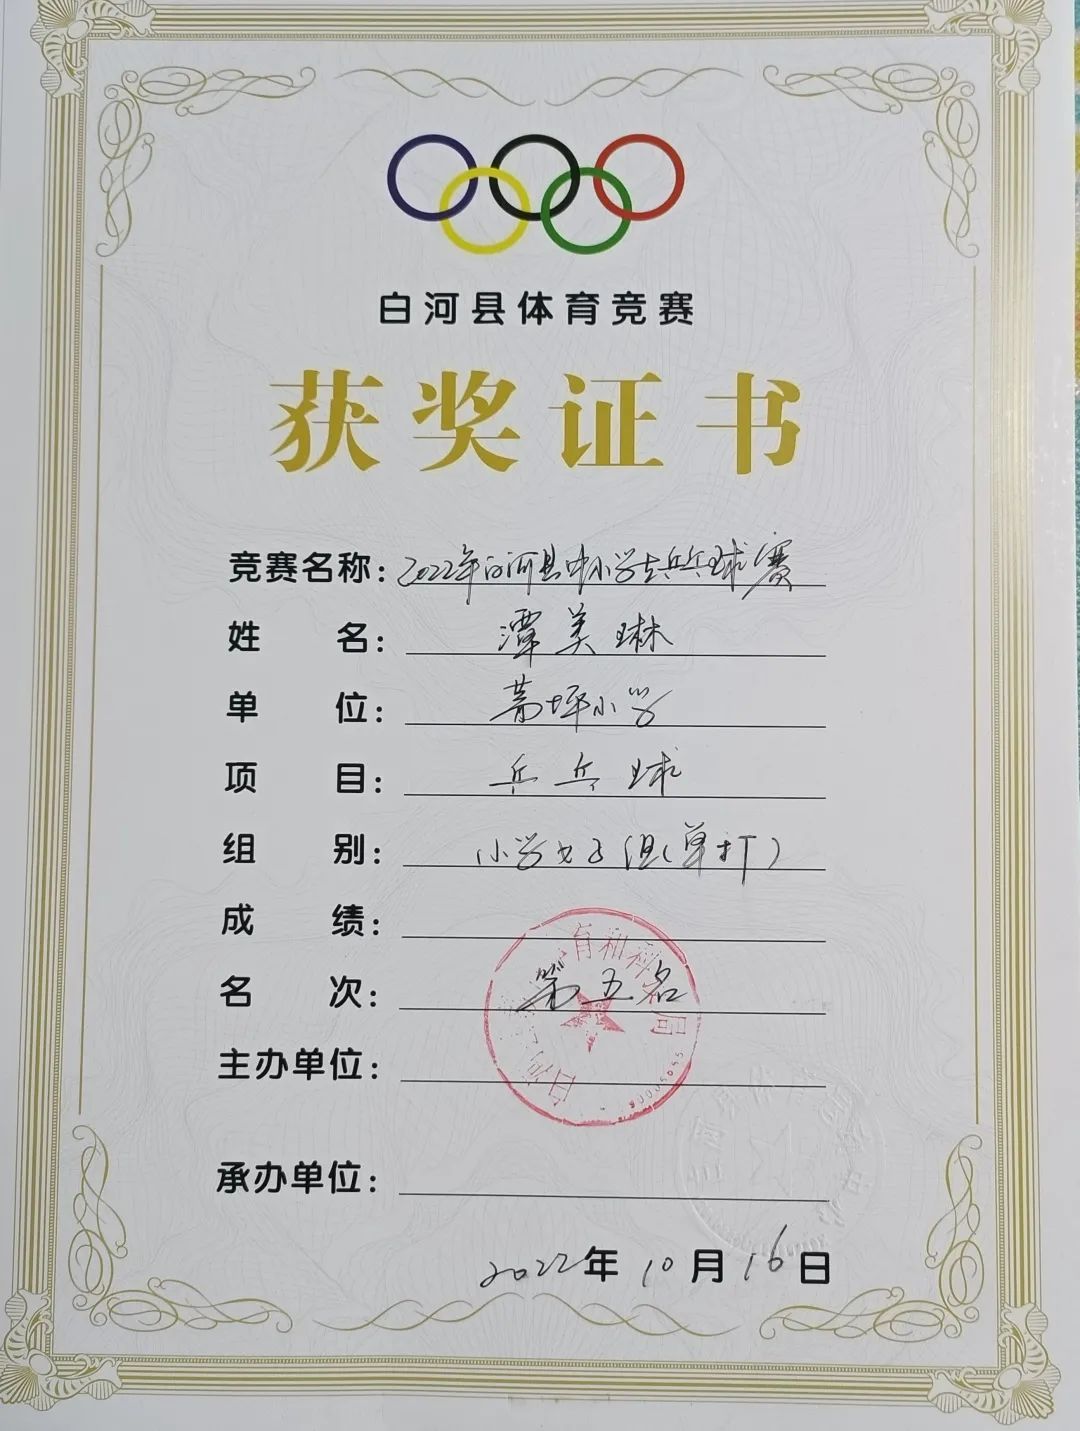 白河县体育竞赛
获奖证书
竞赛名称：2022年白河县中小学生乒乓球赛
姓 名：潭美琳
单 位：茅坪小学
项 目：乒乓球
组 别：小学女子组（单打）
成 绩：
名 次：第五名
主办单位：
承办单位：
2022年10月16日